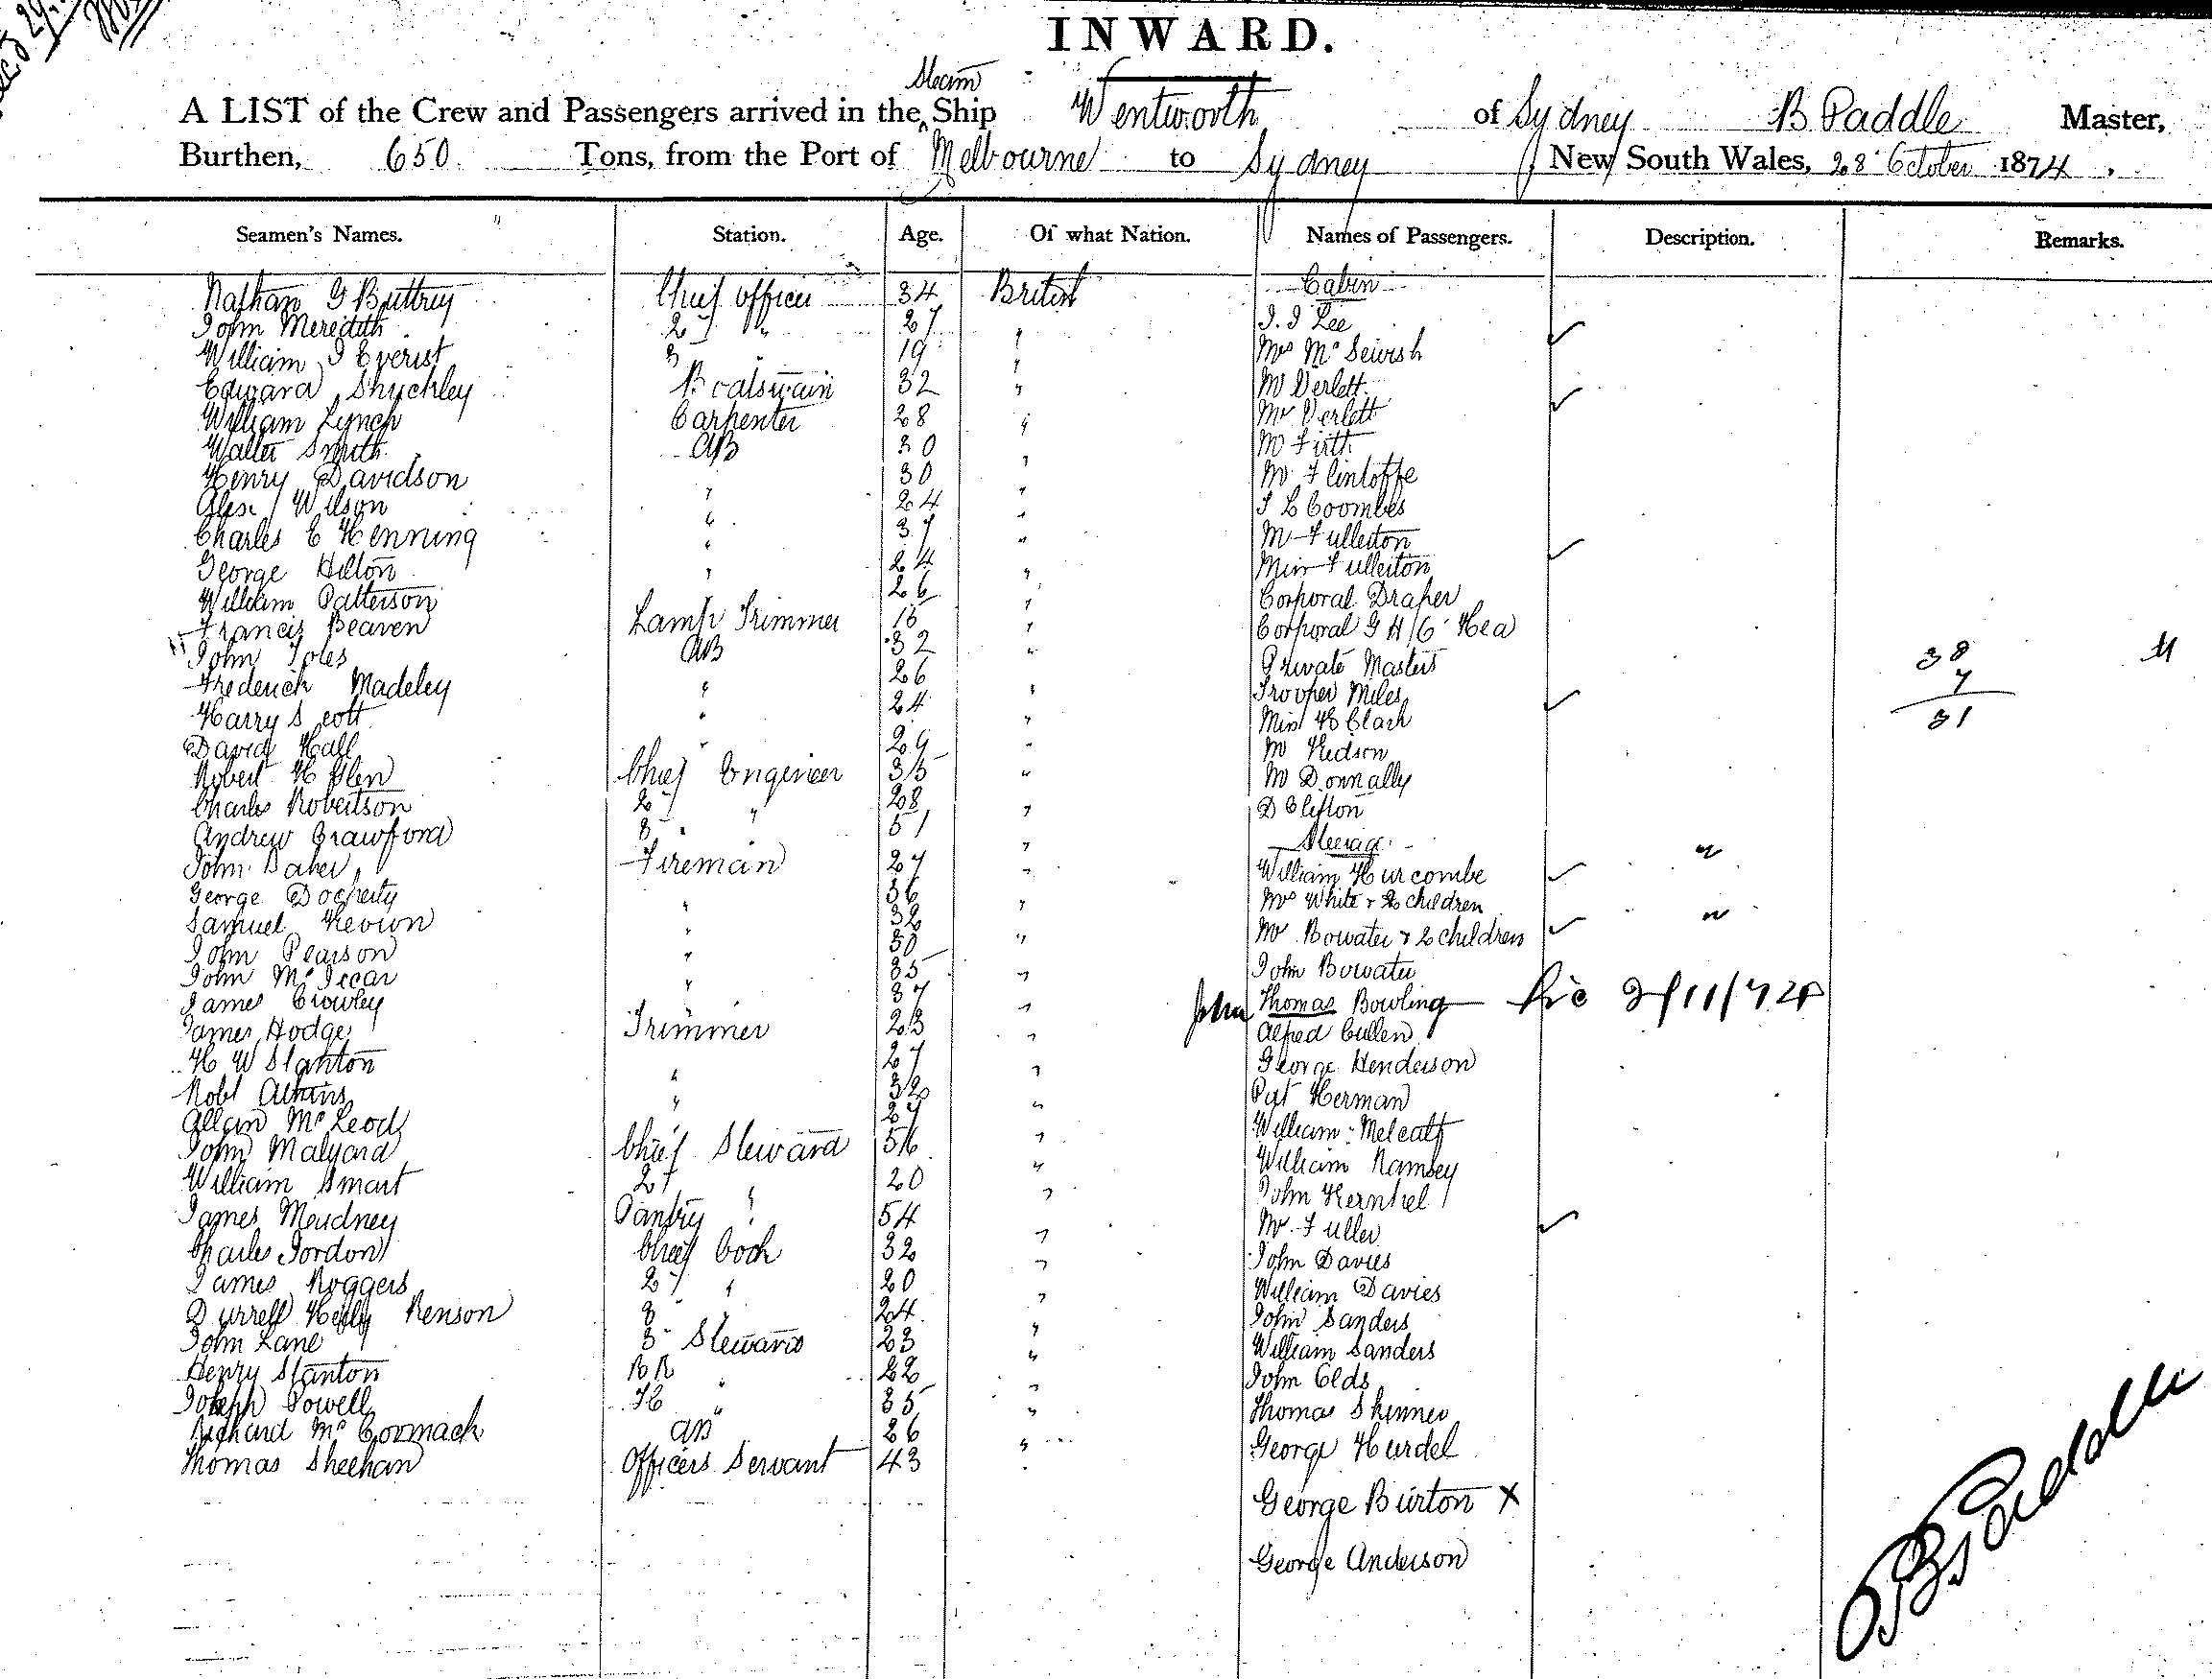 INWARD.
Steam
A LIST of the Crew and Passengers arrived in the Ship Wentworth of Sydney B Paddle Master,
Burthen, 650 Tons, from the Port of Melbourne to Sydney New South Wales, 28 October 1874.
Seamen's Names. Station. Age. Of what Nation. Names of Passengers. Description. Remarks.
Nathan G Buttrey Chief Officer 34 British Cabin
John Meredith 2 " 27 " J. J Lee
William J Everist 3 " 19 " Mrs Mc
Edward Shuckley Boatswain 32 " Mr Verlett
William Lynch Carpenter 28 " Mrs Verlett
Walter Smith AB 30 Mr Firth
Henry Davidson 30 " Mr Flintoffe
Alex Wilson " 24 " J L Coombes
Charles E Henning " 37 " Mr Fullerton
George Hilton " 24 Miss Fullerton
William Patterson " 26 " Corporal Draper
Francis Beaven Lamp Trimmer 16 " Corporal G H
John Toles AB 32 " Private Masters 38
Frederick Madeley " 26 Trooper Miles 7
Harry Scott " 24 " Miss H Clark 31
David Hall " 29 " Mr Hudson
Robert H Glen Chief Engineer 35 " Mr Donnally
Charles Robertson 2 " 28 " D Clifton
Andrew Crawford 3 " 51 " Steerage
John Baker Fireman 27 " William Hurcombe
George Docherty " 36 " Mrs White & 2 children
Samuel " 32 " Mrs Bowater & 2 children
John Pearson " 50
John Mc " 35 " John Bowater
James Crowley 37 " John Thomas Bowling 2/11/74
James Hodge Trimmer 23 " Alfred Cullen
H W Stanton 27 " George Henderson
Robt Atkins " 32 " Pat Herman
Allan McLeod " 27 " William Metcalf
John Malyard Chief Steward 56 " William Ramsey
William Smart 2 " 20 " John
James Moudney Pantry " 54 " Mr Fuller
Charles Jordon Chief Cook 32 " John Davies
James Roggers 2 " 20 " William Davies
Durrell Henson 3 " 24 " John Sanders
John Lane 3 Steward 23 " William Sanders
Henry Stanton BR " 22 " John Olds
Joseph Powell " 35 " Thomas Skinner
Richard McCormack AB 26 " George Hurdel
Thomas Sheehan Officers Servant 43 "
George Burton X
George Anderson
B Paddle